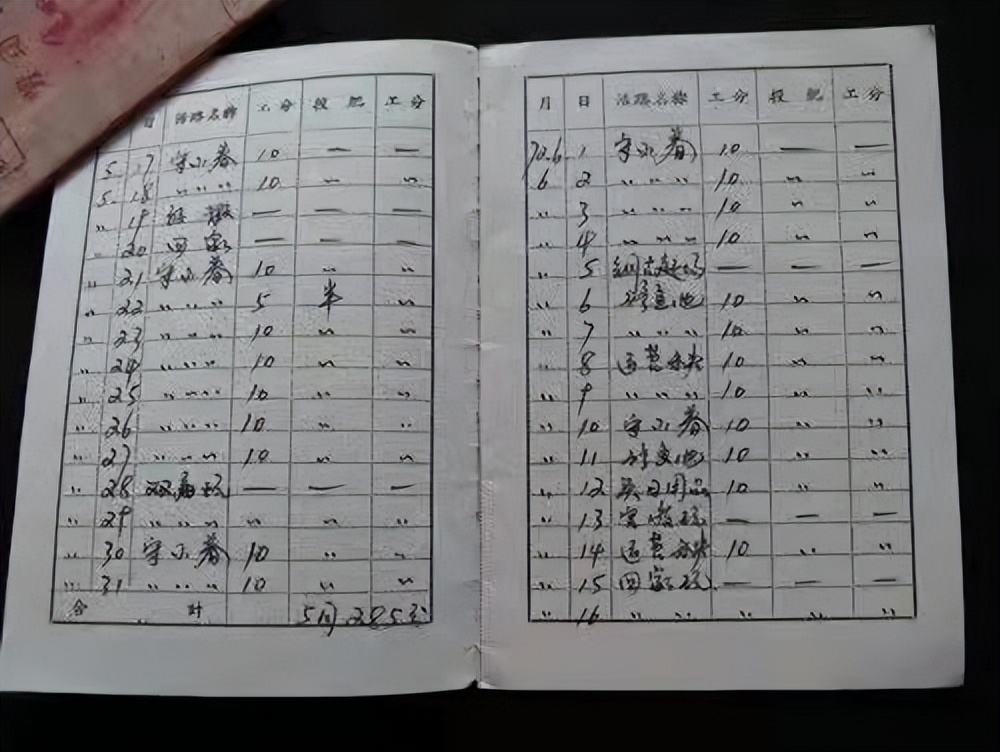 日 活路名称 工分 投肥 工分
5. 17 守小春 10 — —
5. 18 〃 〃 〃 10 〃 〃
〃 19 — — —
〃 20 回家 — — —
〃 21 守小春 10 〃 〃
〃 22 〃 〃 〃 5 半 〃
〃 23 〃 〃 〃 10 〃 〃
〃 24 〃 〃 〃 10 〃 〃
〃 25 〃 〃 〃 10 〃 〃
〃 26 〃 〃 〃 10 〃 〃
〃 27 〃 〃 〃 10 〃 〃
〃 28 — — —
〃 29 〃 〃 〃 〃 〃 〃
〃 30 守小春 10 〃 〃
〃 31 〃 〃 〃 10 〃 〃
合计 5月285分
月 日 活路名称 工分 投肥 工分
72.6. 1 守小春 10 — —
6 2 〃 〃 〃 10 〃 〃
〃 3 〃 〃 〃 10 〃 〃
〃 4 〃 〃 〃 10 〃 〃
〃 5 — — —
〃 6 10 〃 〃
〃 7 〃 〃 〃 10 〃 〃
〃 8 10 〃 〃
〃 9 〃 〃 〃 10 〃 〃
〃 10 守小春 10 〃 〃
〃 11 10 〃 〃
〃 12 买日用品 10 〃 〃
〃 13 — — —
〃 14 10 〃 〃
〃 15 回家 — — —
〃 16 〃 〃 〃 〃 〃